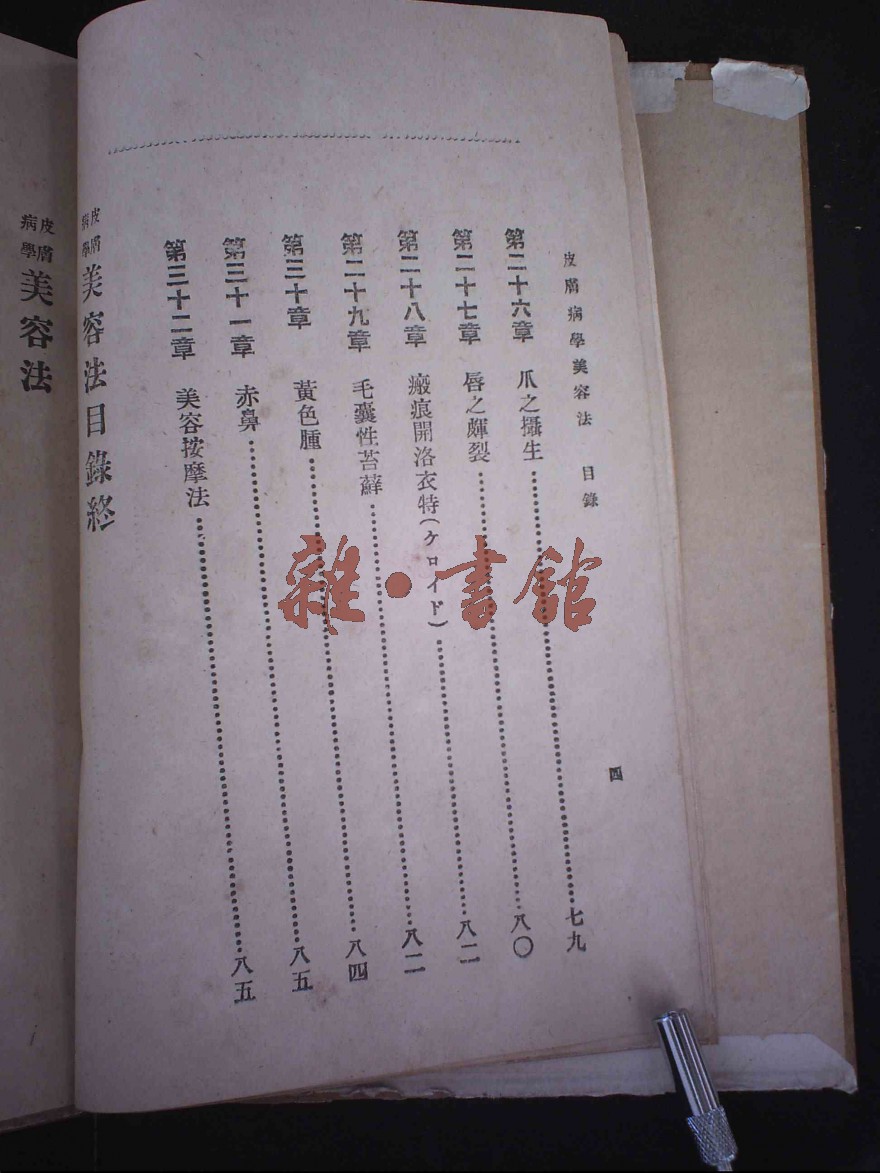 皮膚病學美容法 目錄 四
第二十六章 爪之攝生………七九
第二十七章 唇之皸裂………八〇
第二十八章 瘢痕開洛衣特(ケロイド)………八二
第二十九章 毛囊性苔蘚………八二
第三十章 黃色腫………八四
第三十一章 赤鼻………八五
第三十二章 美容按摩法………八五
皮膚病學美容法目錄終
皮膚病學美容法
雜·書館